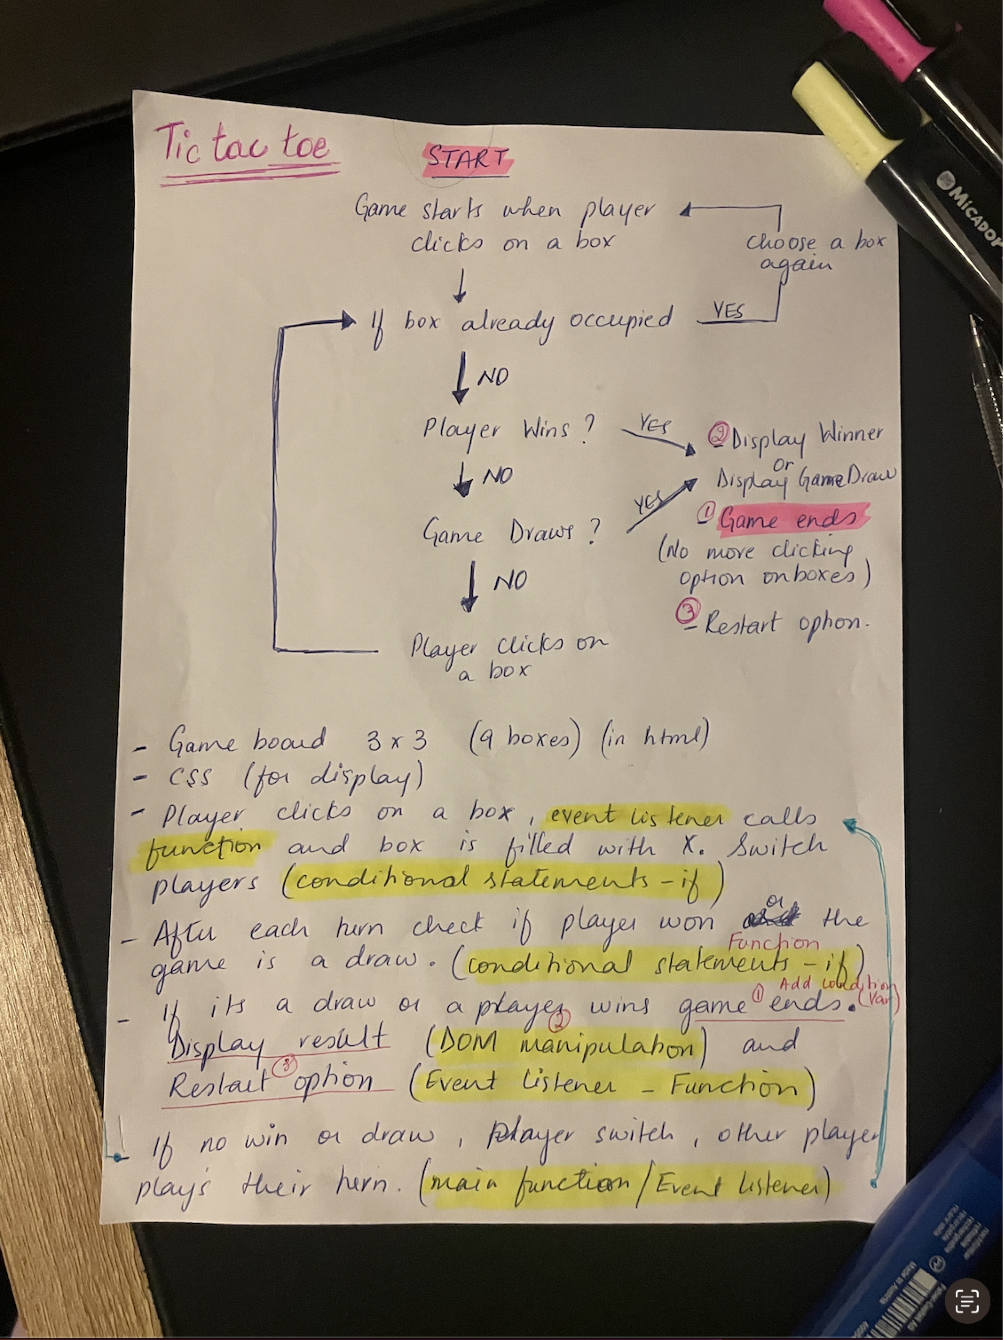 Tic tac toe
START
Game starts when player
clicks on a box
choose a box
again
If box already occupied
YES
NO
Player Wins ?
YES
② Display Winner
or
Display Game Draw
NO
Game Draws ?
YES
① Game ends
(No more clicking
option on boxes)
NO
③ - Restart option.
Player clicks on
a box
- Game board 3 x 3 (9 boxes) (in html)
- CSS (for display)
- Player clicks on a box, event listener calls
function and box is filled with X. Switch
players (conditional statements - if)
- After each turn check if player won or the
Function
game is a draw. (conditional statements - if)
Add condition
(Var)
- If its a draw or a player wins game ① ends.
Display result ② (DOM manipulation) and
Restart ③ option (Event listener - Function)
- If no win or draw, Player switch, other player
plays their turn. (main function / Event listener)
MICADOR